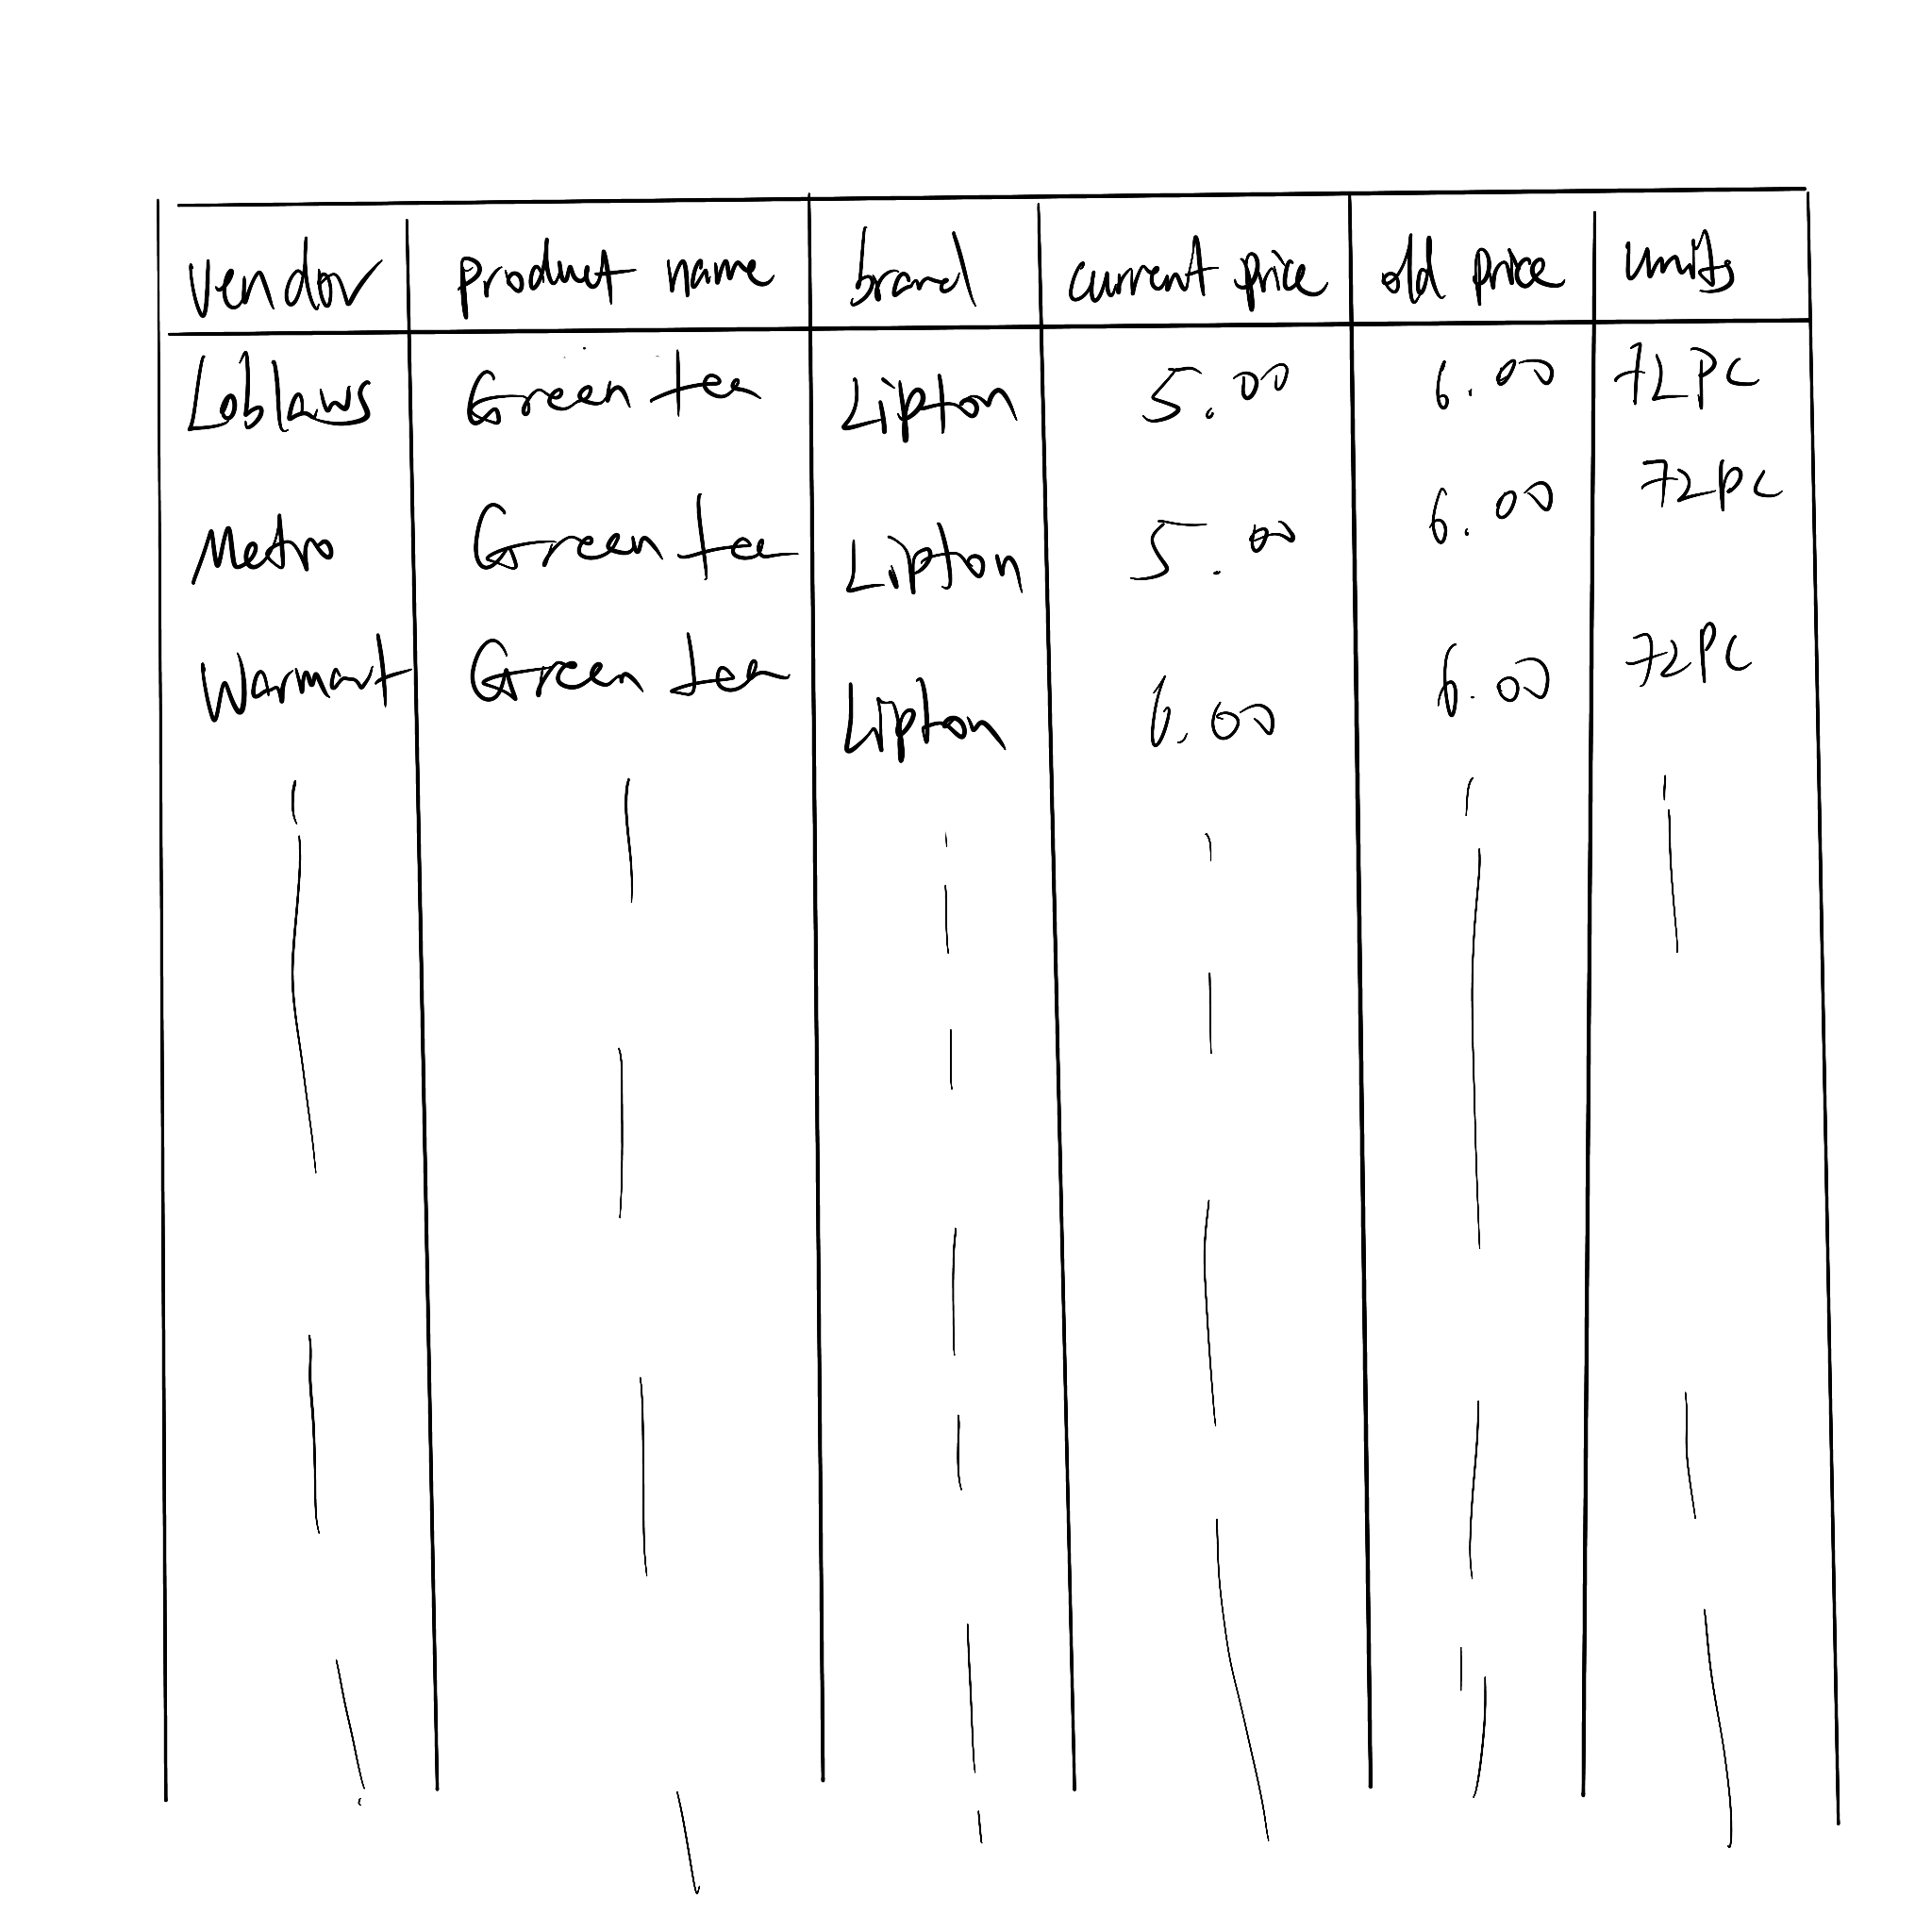 Vendor Product name brand current price old price units
Loblaws Green tea Lipton 5.00 6.00 72PC
Metro Green tea Lipton 5.00 6.00 72PC
Warmart Green tea Lipton 6.00 6.00 72PC